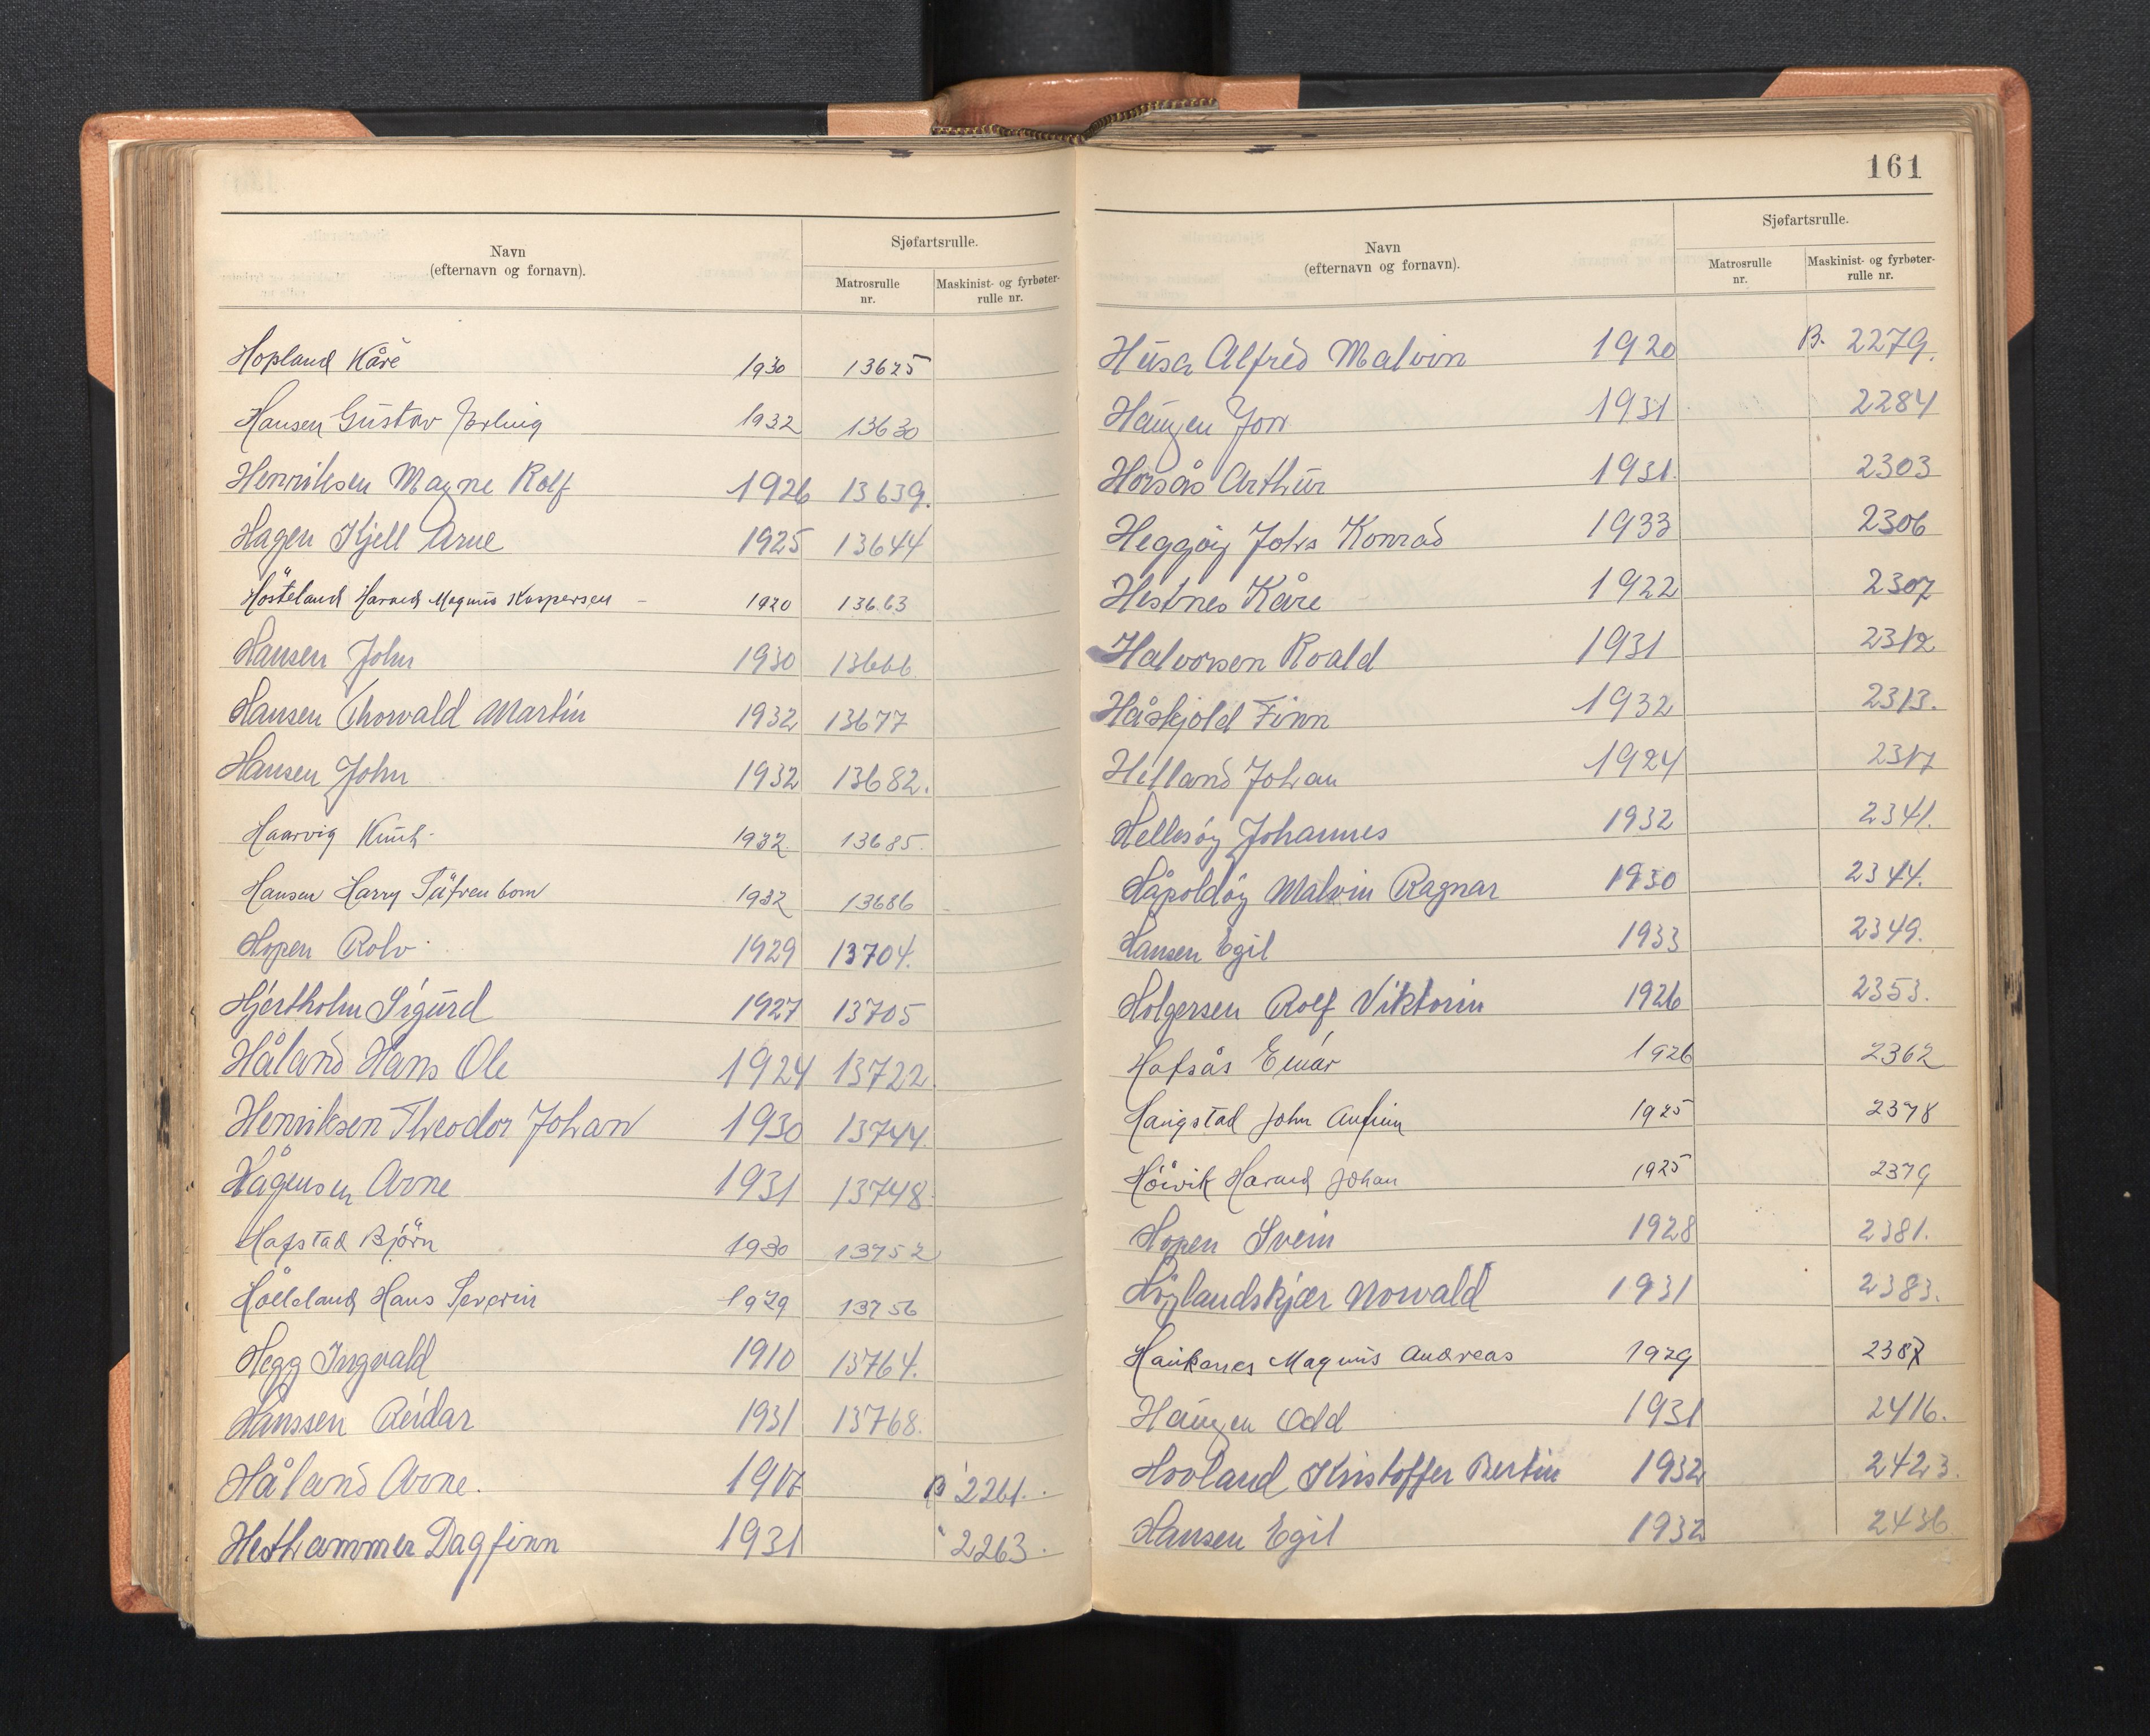 Navn
(efternavn og fornavn).
Sjøfartsrulle.
Matrosrulle
nr.
Maskinist- og fyrbøter-
rulle nr.
Hopland Kåre 1930 13625
Hansen Gustav Erling 1932 13630
Henriksen Magne Rolf 1926 13639.
Hagen Kjell Arne 1925 13644
Hösteland Harald Magnus Kaspersen - 1920 13663
Hansen John 1930 13666
Hansen Thorvald Martin 1932 13677
Hansen John 1932 13682.
Haarvig Knut 1932. 13685.
Hansen Harry 1932 13686
Hopen Rolv 1929 13704.
Hjertholm Sigurd 1927 13705
Håland Hans Ole 1924 13722
Henriksen Theodor Johan 1930 13744.
Hågensen Arne 1931 13748.
Hafstad Björn 1930 13752
Hölleland Hans Severin 1929 13756
Hegg Ingvald 1910 13764.
Hanssen Reidar 1931 13768.
Håland Arne. B 2261.
Hesthammer Dagfinn 1931 " 2263.
161
Navn
(efternavn og fornavn).
Sjøfartsrulle.
Matrosrulle
nr.
Maskinist- og fyrbøter-
rulle nr.
Husa Alfred Malvin 1920 B. 2279.
Haugen Jon 1931 2284
Horsås Arthur 1931. 2303
Heggöy Johs Konrad 1933 2306
Hestnes Kåre 1922 2307
Halvorsen Roald 1931 2312
Håskjold Finn 1932 2313.
Helland Johan 1924 2317
Hellesöy Johannes 1932 2341.
Håpoldöy Malvin Ragnar 1930 2344.
Hansen Egil 1933 2349.
Holgersen Rolf Viktorin 1926 2353.
Hafsås Einar 1926 2362
Haugstad John Anfinn 1925 2378
Höivik Harald Johan 1925 2379
Hopen Svein 1928 2381.
Höylandskjær Norvald 1931 2383.
Haukanes Magnus Andreas 1929 2387
Haugen Odd 1931 2416.
Hovland Kristoffer Bertin 1932 2423.
Hansen Egil 1932 2436